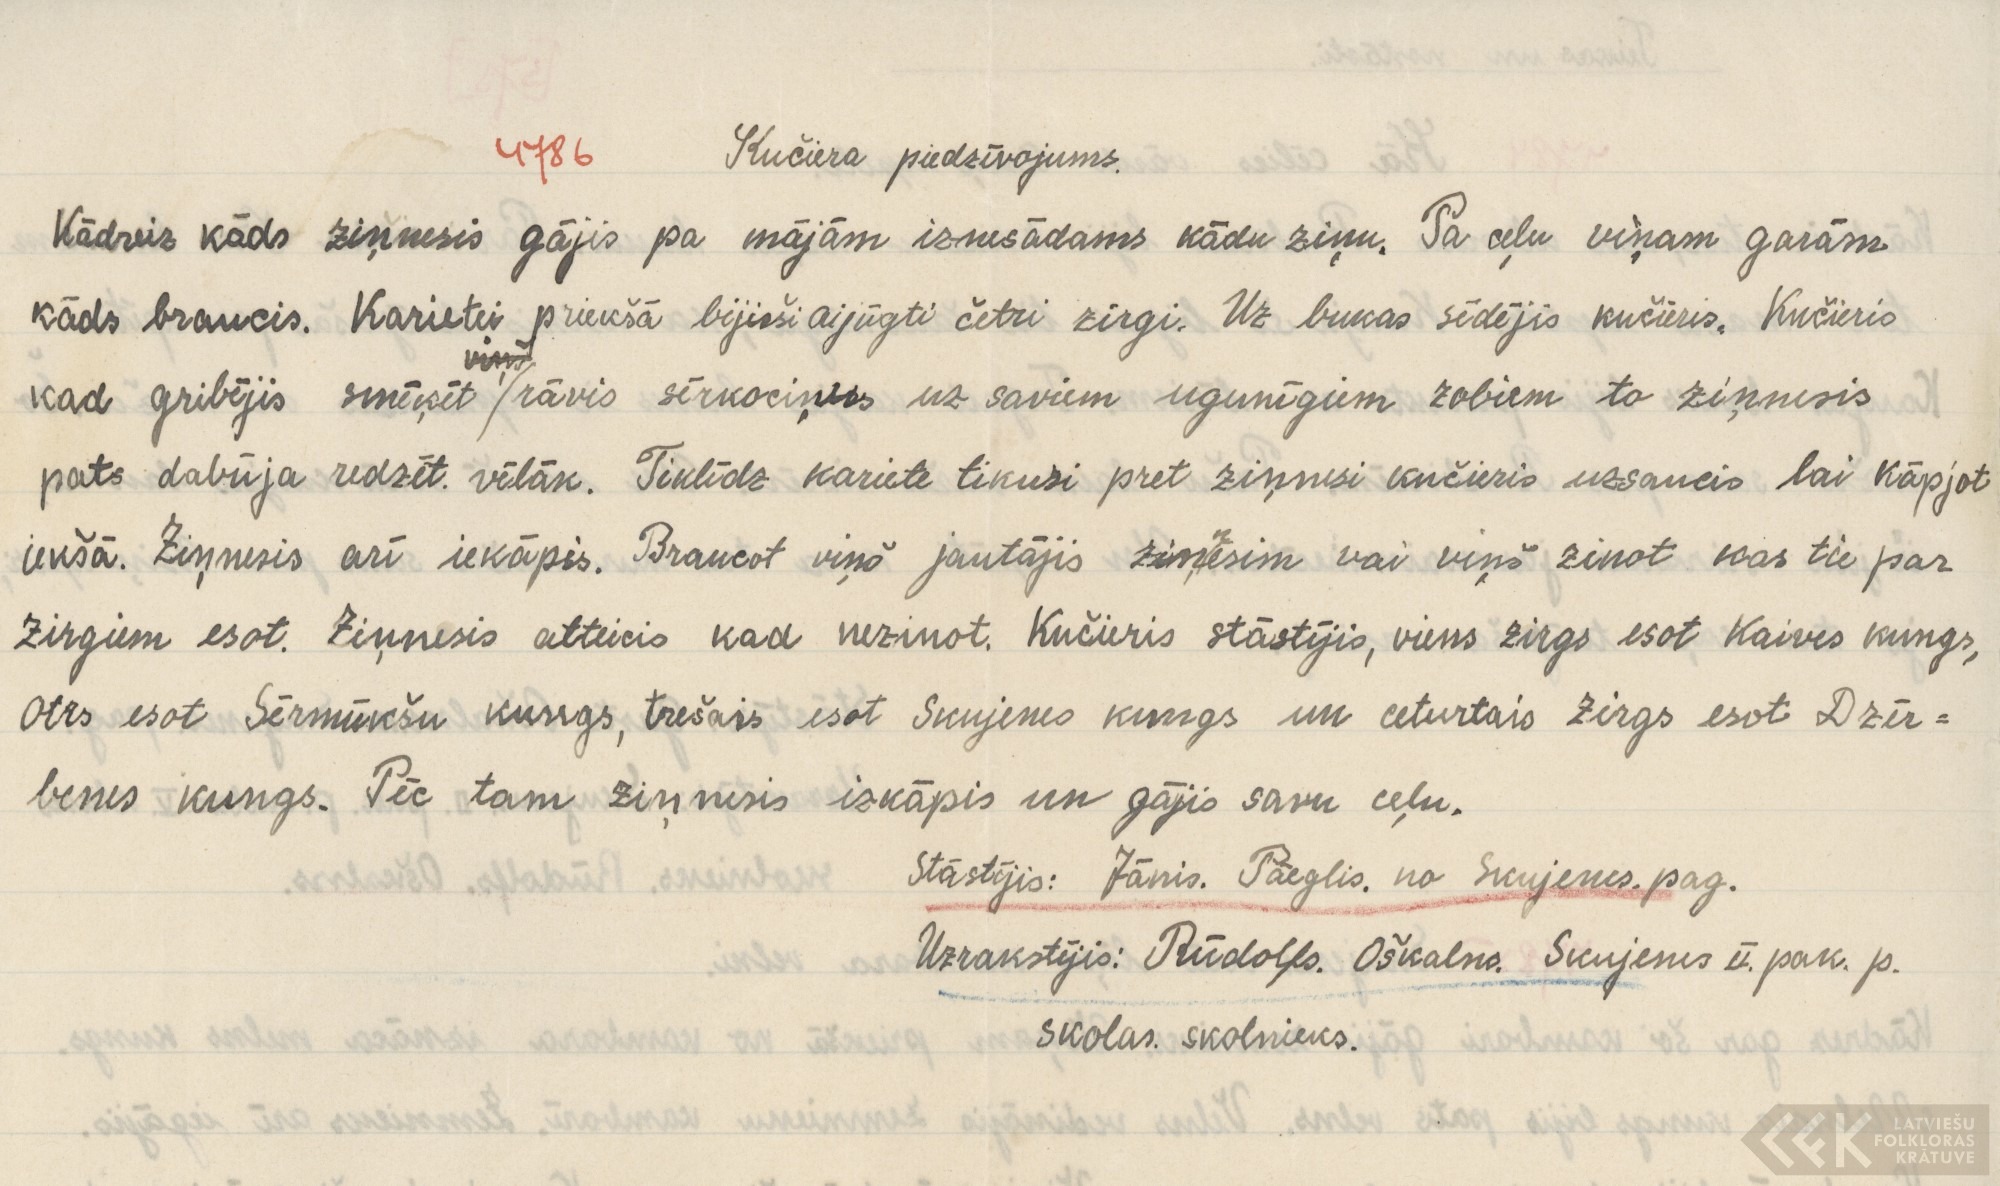 4786 Kučiera piedzīvojums.
Kādreiz kāds ziņnesis gājis pa mājām iznesādams kādu ziņu. Pa ceļu viņam garām
kāds braucis. Karietei priekšā bijuši aijūgti četri zirgi. Uz bukas sēdējis kučieris. Kučieris
viņš
kad gribējis smēķēt rāvis sērkociņus uz saviem ugunīgiem zobiem to ziņnesis
pats dabūja redzēt. vēlāk. Tiklīdz kariete tikusi pret ziņnesi kučieris uzsaucis lai kāpjot
iekšā. Ziņnesis arī iekāpis. Braucot viņš jautājis ziņnesim vai viņš zinot kas tie par
zirgiem esot. Ziņnesis atteicis kad nezinot. Kučieris stāstījis, viens zirgs esot Kaives kungs,
otrs esot Sērmūkšu kungs, trešais esot Skujenes kungs un ceturtais zirgs esot Dzēr=
benes kungs. Pēc tam ziņnesis izkāpis un gājis savu ceļu.
Stāstījis: Jānis. Paeglis. no Skujenes. pag.
Uzrakstījis: Rūdolfs. Oškalns. Skujenes II. pak. p.
skolas. skolnieks.
LATVIEŠU
FOLKLORAS
KRĀTUVE